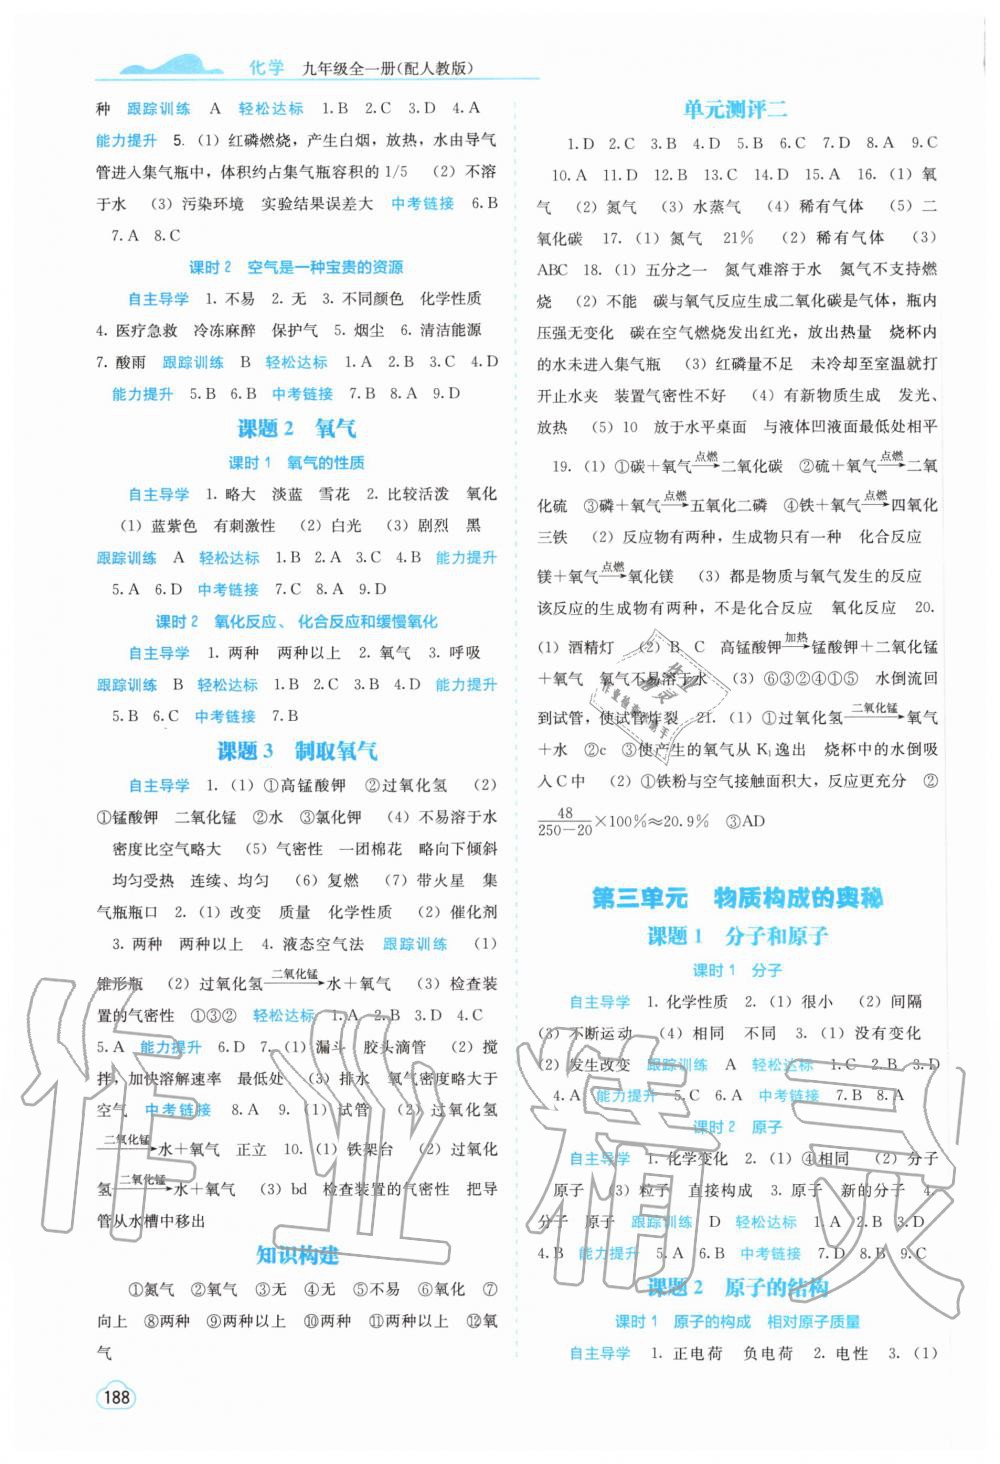 化学 九年级全一册(配人教版)
种 跟踪训练 A 轻松达标 1.B 2.C 3.D 4.A
能力提升 5.(1)红磷燃烧,产生白烟,放热,水由导气
管进入集气瓶中,体积约占集气瓶容积的1/5 (2)不溶
于水 (3)污染环境 实验结果误差大 中考链接 6.B
7.A 8.C
课时2 空气是一种宝贵的资源
自主导学 1.不易 2.无 3.不同颜色 化学性质
4.医疗急救 冷冻麻醉 保护气 5.烟尘 6.清洁能源
7.酸雨 跟踪训练 B 轻松达标 1.A 2.B 3.C 4.D
能力提升 5.B 6.B 中考链接 7.B 8.A 9.D
课题2 氧气
课时1 氧气的性质
自主导学 1.略大 淡蓝 雪花 2.比较活泼 氧化
(1)蓝紫色 有刺激性 (2)白光 (3)剧烈 黑
跟踪训练 A 轻松达标 1.B 2.A 3.C 4.B 能力提升
5.A 6.D 中考链接 7.C 8.A 9.D
课时2 氧化反应、化合反应和缓慢氧化
自主导学 1.两种 两种以上 2.氧气 3.呼吸
跟踪训练 B 轻松达标 1.B 2.C 3.B 4.D 能力提升
5.B 6.C 中考链接 7.B
课题3 制取氧气
自主导学 1.(1)①高锰酸钾 ②过氧化氢 (2)
①锰酸钾 二氧化锰 ②水 ③氯化钾 (4)不易溶于水
密度比空气略大 (5)气密性 一团棉花 略向下倾斜
均匀受热 连续、均匀 (6)复燃 (7)带火星 集
气瓶瓶口 2.(1)改变 质量 化学性质 (2)催化剂
3.两种 两种以上 4.液态空气法 跟踪训练 (1)
锥形瓶 (2)过氧化氢 二氧化锰→ 水+氧气 (3)检查装
置的气密性 ①③② 轻松达标 1.A 2.B 3.D 4.C
5.A 能力提升 6.D 7.(1)漏斗 胶头滴管 (2)搅
拌,加快溶解速率 最低处 (3)排水 氧气密度略大于
空气 中考链接 8.A 9.(1)试管 (2)过氧化氢
二氧化锰→ 水+氧气 正立 10.(1)铁架台 (2)过氧化
氢 二氧化锰→ 水+氧气 (3)bd 检查装置的气密性 把导
管从水槽中移出
知识构建
①氮气 ②氧气 ③无 ④无 ⑤不易 ⑥氧化 ⑦
向上 ⑧两种 ⑨两种以上 ⑩两种 ⑪两种以上 ⑫氧
气
188
单元测评二
1.D 2.C 3.B 4.D 5.B 6.C 7.D 8.A 9.C
10.A 11.D 12.B 13.C 14.D 15.A 16.(1)氧
气 (2)氮气 (3)水蒸气 (4)稀有气体 (5)二
氧化碳 17.(1)氮气 21% (2)稀有气体 (3)
ABC 18.(1)五分之一 氮气难溶于水 氮气不支持燃
烧 (2)不能 碳与氧气反应生成二氧化碳是气体,瓶内
压强无变化 碳在空气燃烧发出红光,放出热量 烧杯内
的水未进入集气瓶 (3)红磷量不足 未冷却至室温就打
开止水夹 装置气密性不好 (4)有新物质生成 发光、
放热 (5)10 放于水平桌面 与液体凹液面最低处相平
19.(1)①碳+氧气 点燃→ 二氧化碳 ②硫+氧气 点燃→ 二氧
化硫 ③磷+氧气 点燃→ 五氧化二磷 ④铁+氧气 点燃→ 四氧化
三铁 (2)反应物有两种,生成物只有一种 化合反应
镁+氧气 点燃→ 氧化镁 (3)都是物质与氧气发生的反应
该反应的生成物有两种,不是化合反应 氧化反应 20.
(1)酒精灯 (2)B C 高锰酸钾 加热→ 锰酸钾+二氧化锰
+氧气 氧气不易溶于水 (3)⑥③②④①⑤ 水倒流回
到试管,使试管炸裂 21.(1)①过氧化氢 二氧化锰→ 氧气
+水 ②c ③使产生的氧气从K₁逸出 烧杯中的水倒吸
入C中 (2)①铁粉与空气接触面积大,反应更充分 ②
48/250-20 ×100%≈20.9% ③AD
第三单元 物质构成的奥秘
课题1 分子和原子
课时1 分子
自主导学 1.化学性质 2.(1)很小 (2)间隔
(3)不断运动 (4)相同 不同 3.(1)没有变化
(2)发生改变 跟踪训练 A 轻松达标 1.C 2.B 3.D
4.A 能力提升 5.C 6.A 中考链接 7.B 8.A
课时2 原子
自主导学 1.化学变化 2.(1)④相同 (2)分子
原子 (3)粒子 直接构成 3.原子 新的分子 4.
分子 原子 跟踪训练 D 轻松达标 1.A 2.B 3.D
4.B 能力提升 5.A 6.B 中考链接 7.D 8.B 9.C
课题2 原子的结构
课时1 原子的构成 相对原子质量
自主导学 1.正电荷 负电荷 2.电性 3.(1)
作业精灵